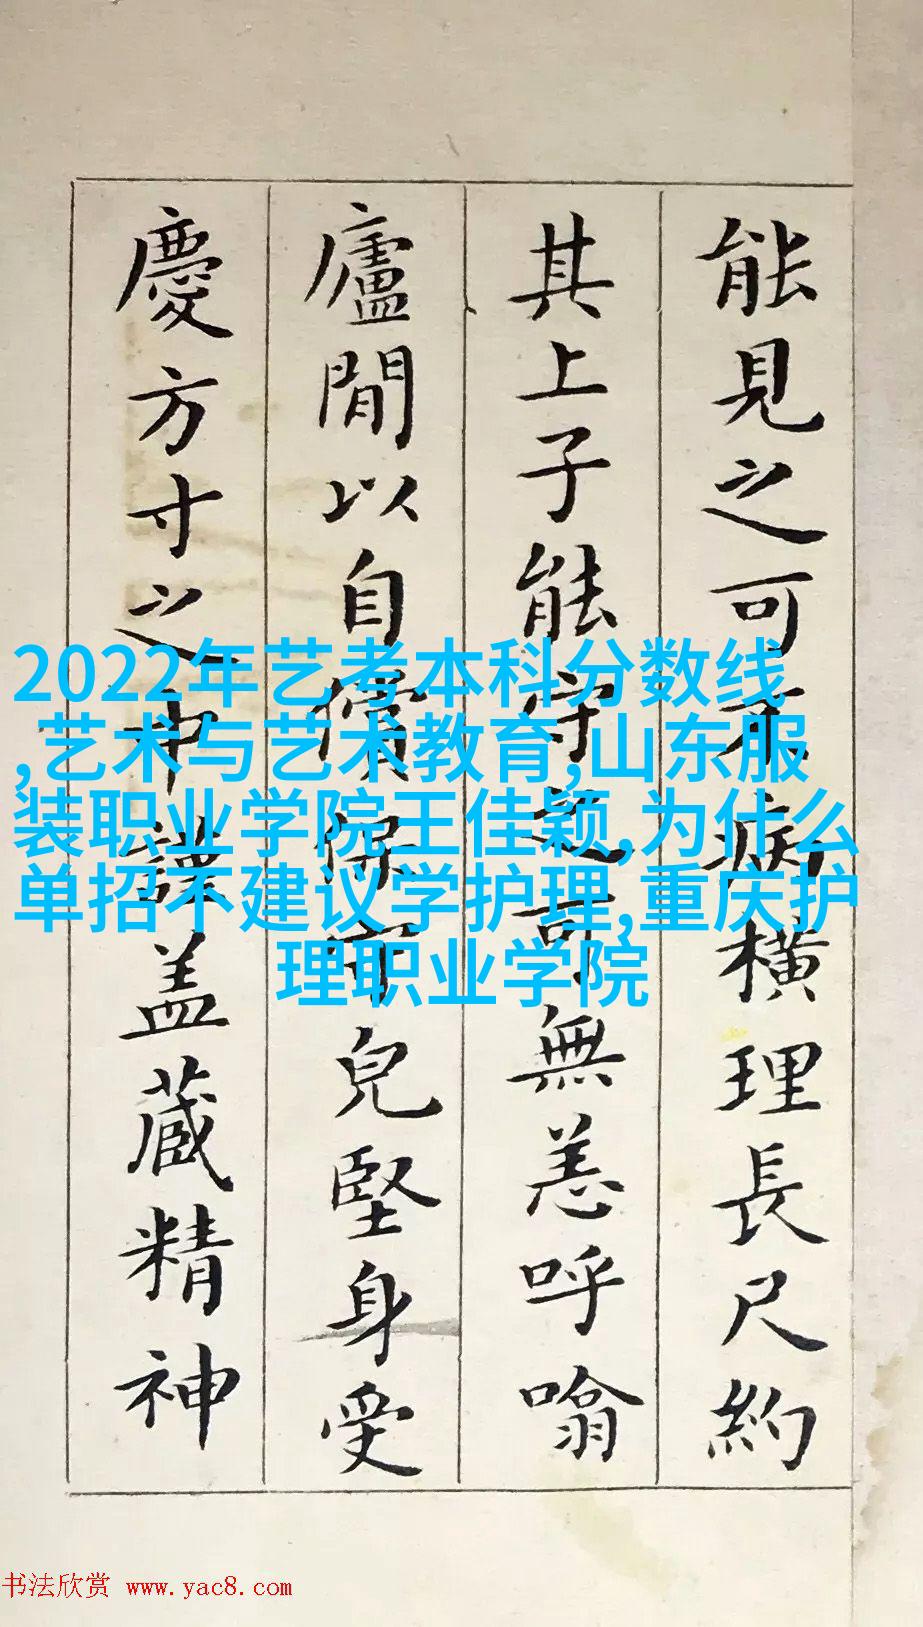 能見之可不病橫理長尺約
其上子能守之可無恙呼噏
廬閒以自償保守兒堅身受
慶方寸之中謹盖藏精神
2022年艺考本科分数线
,艺术与艺术教育,山东服
装职业学院王佳颖,为什么
单招不建议学护理,重庆护
理职业学院
书法欣赏 www.yac8.com